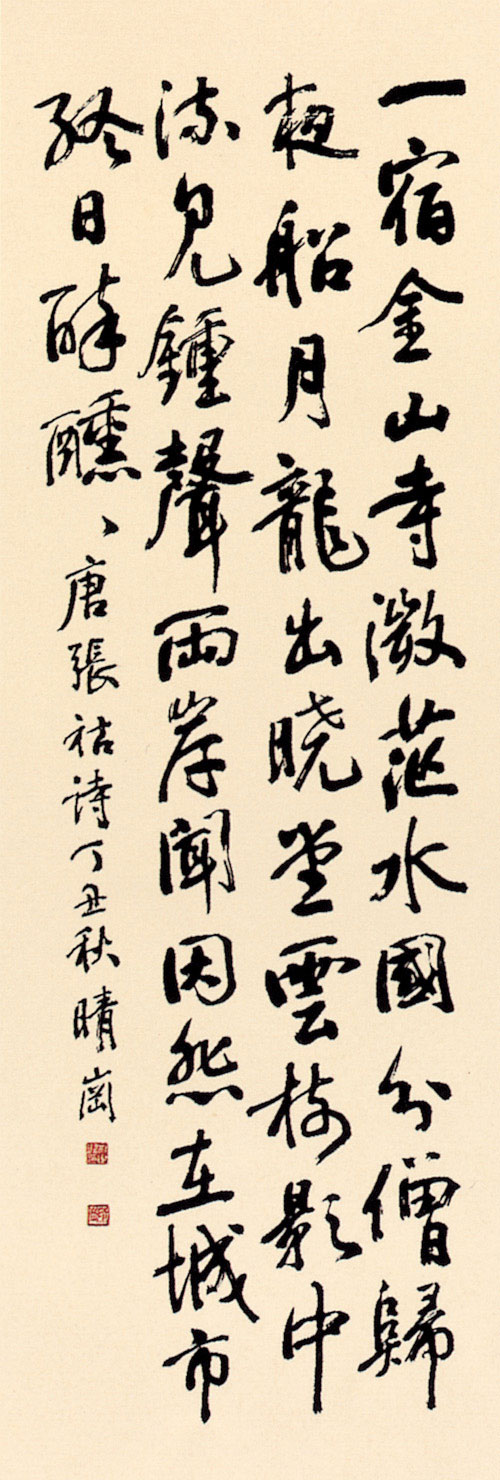 一宿金山寺微茫水國分僧歸
夜船月龍出曉堂雲樹影中
流見鍾聲兩岸聞因悲在城市
終日醉醺、唐張祜詩丁丑秋晴崗